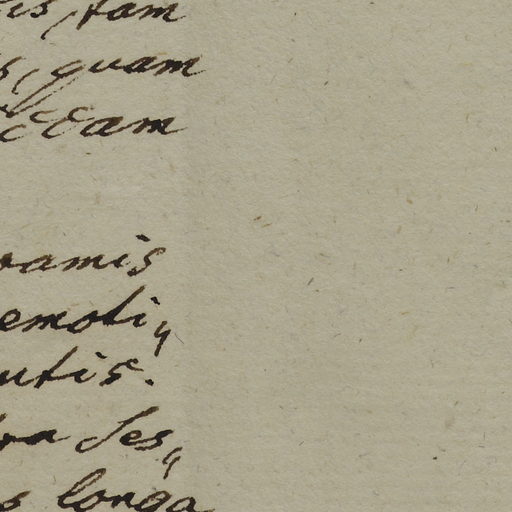 is, tam
s, quam
dam
ramis
emoti„
utis.
ra ses„
s longa